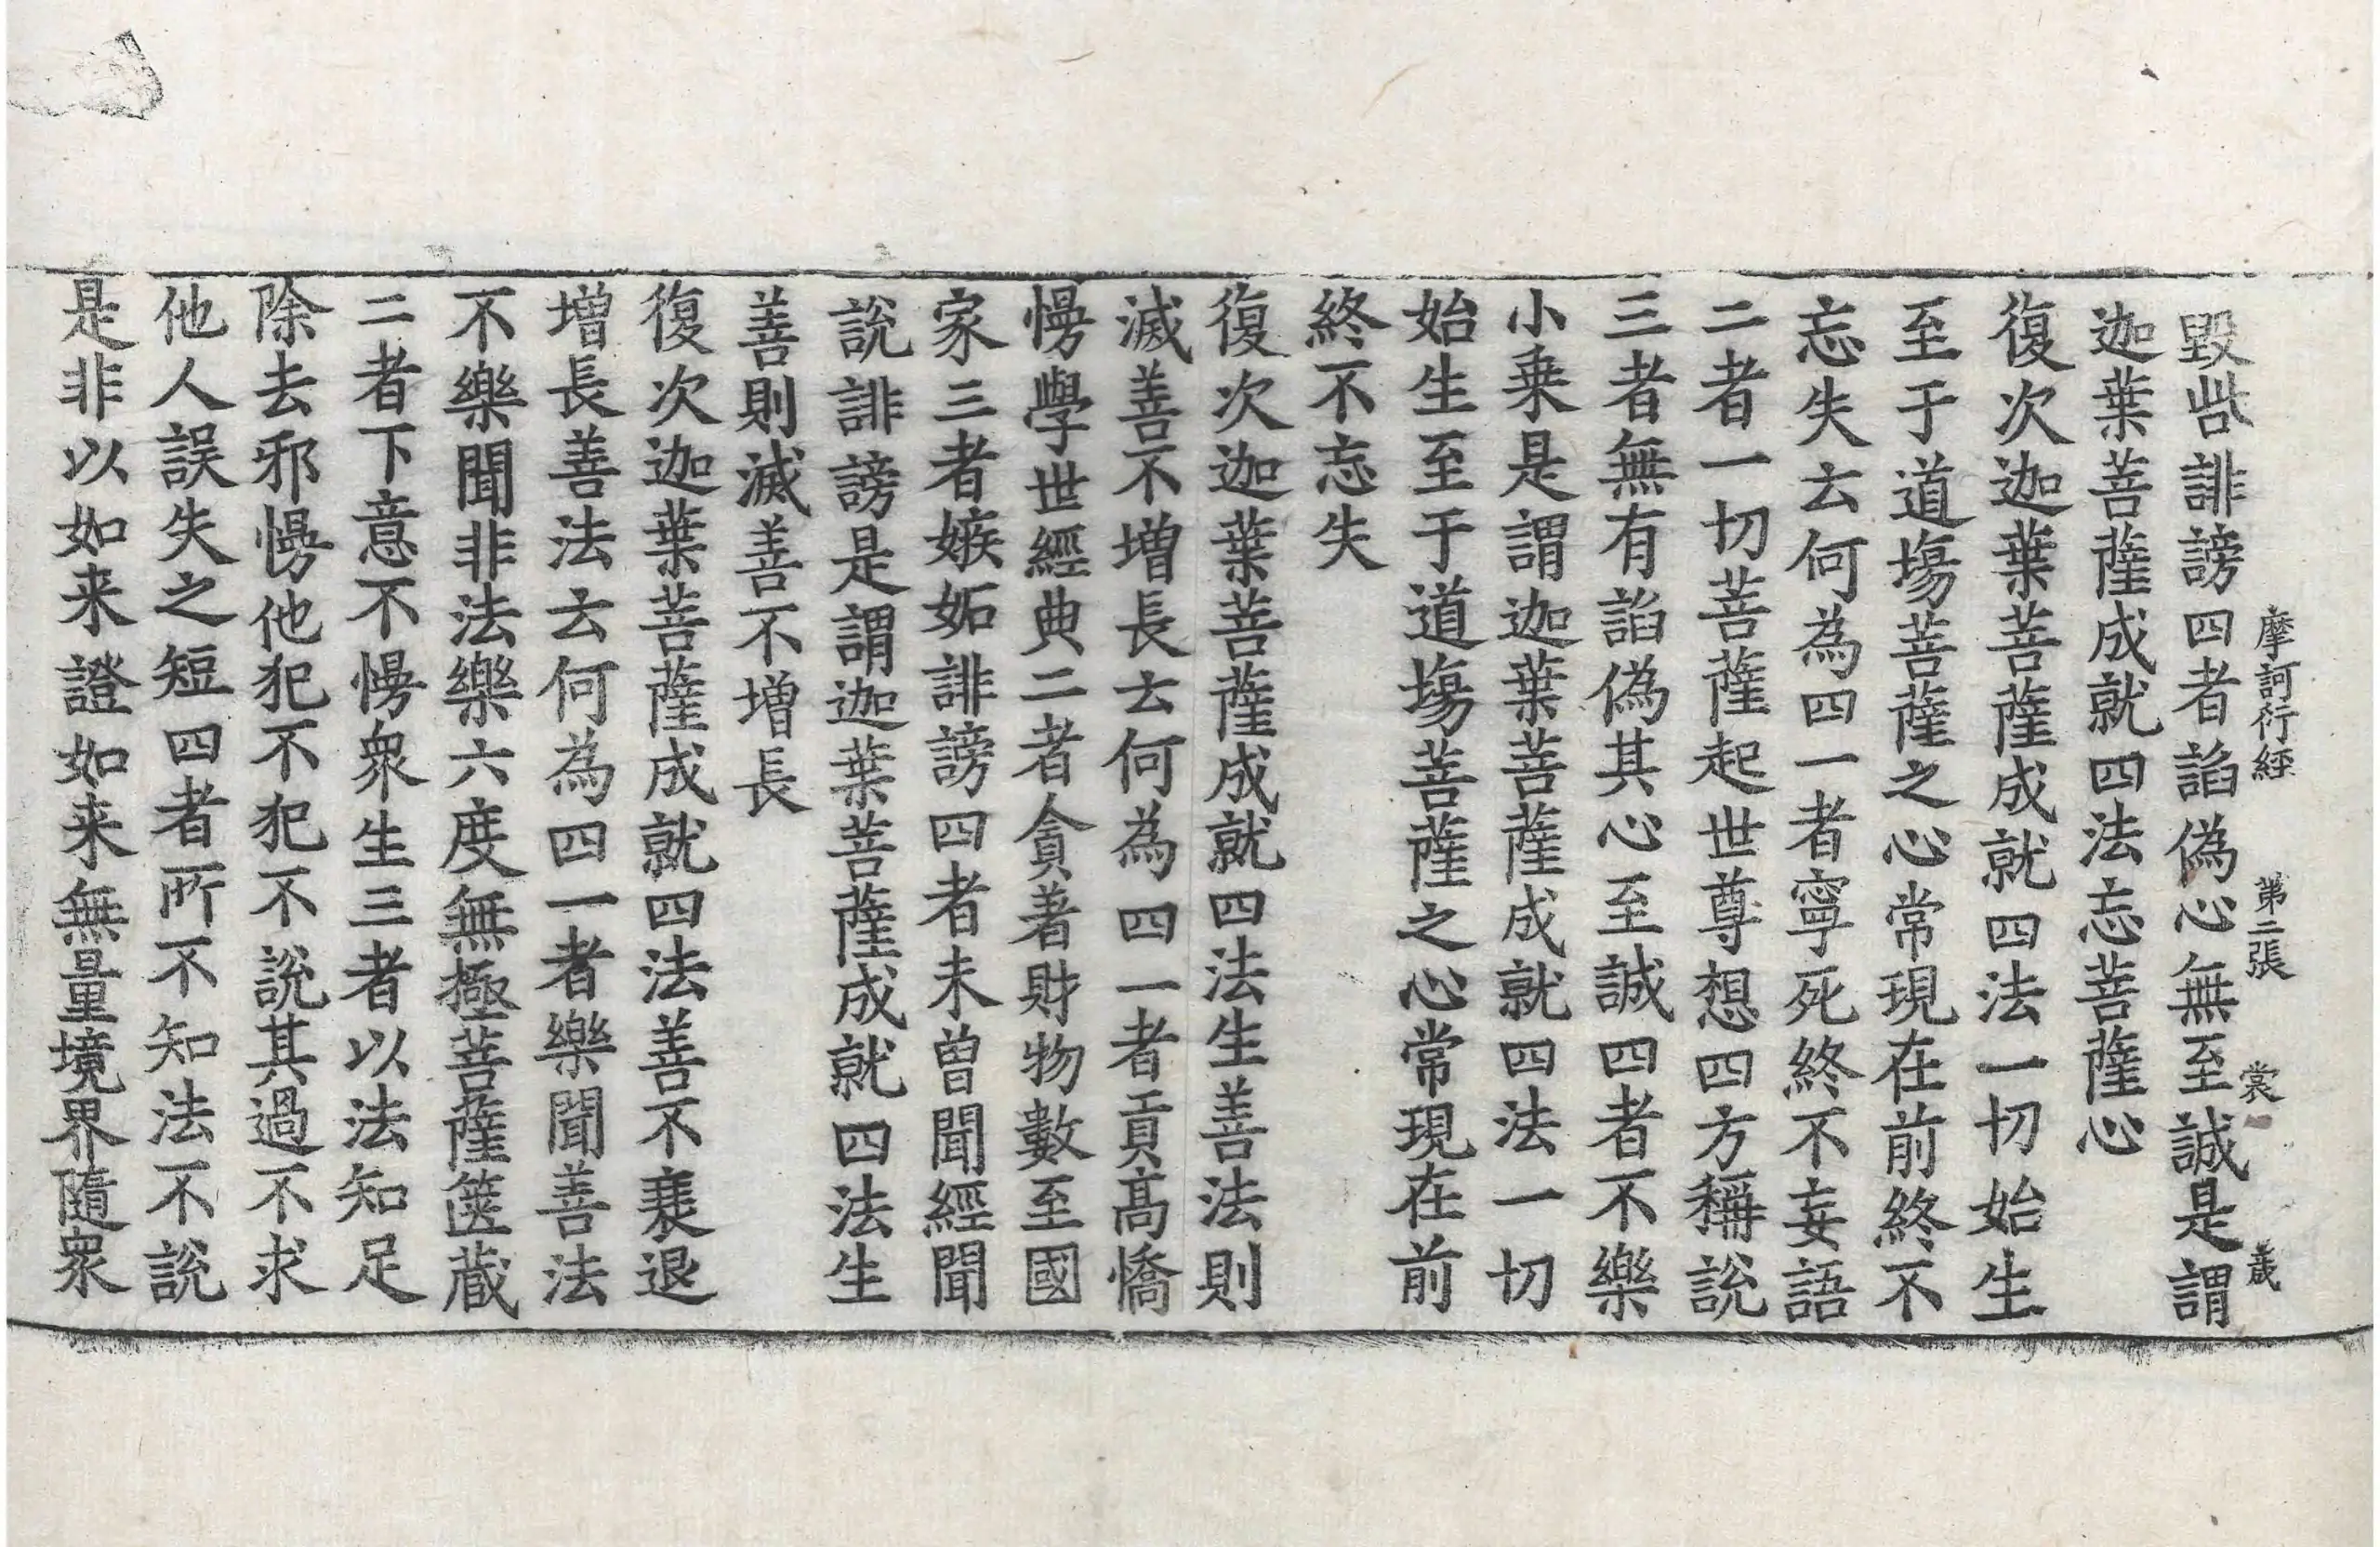 摩訶衍經 第二張 裳 歲
毀呰誹謗四者諂偽心無至誠是謂
迦葉菩薩成就四法忘菩薩心
復次迦葉菩薩成就四法一切始生
至于道場菩薩之心常現在前終不
忘失去何為四一者寧死終不妄語
二者一切菩薩起世尊想四方稱說
三者無有諂偽其心至誠四者不樂
小乗是謂迦葉菩薩成就四法一切
始生至于道場菩薩之心常現在前
終不忘失
復次迦葉菩薩成就四法生善法則
滅善不増長去何為四一者貢髙憍
慢學世經典二者貪著財物數至國
家三者嫉妬誹謗四者未曾聞經聞
說誹謗是謂迦葉菩薩成就四法生
善則滅善不増長
復次迦葉菩薩成就四法善不衰退
増長善法去何為四一者樂聞善法
不樂聞非法樂六度無極菩薩篋蔵
二者下意不慢衆生三者以法知足
除去邪慢他犯不犯不說其過不求
他人誤失之短四者所不知法不說
是非以如来證如来無量境界隨衆